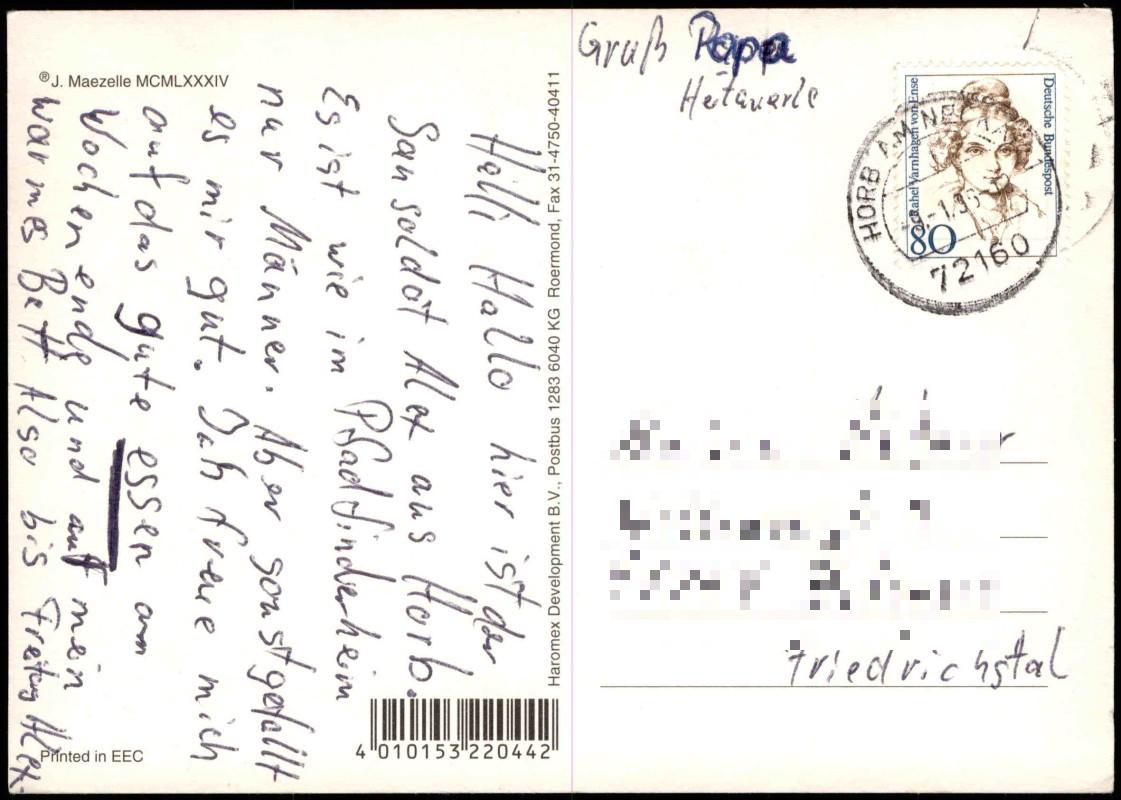 Halli Hallo hier ist der
San soldat Alex aus Horb.
Es ist wie im Pfadfinderheim
nur Männer. Aber sonst gefällt
es mir gut. Ich freue mich
auf das gute essen am
Wochenende und auf mein
warmes Bett Also bis Freitag Alex
®J. Maezelle MCMLXXXIV
Printed in EEC
Haromex Development B.V., Postbus 1283 6040 KG Roermond, Fax 31-4750-40411
4 010153 220442
Gruß Papa
Deutsche Bundespost
Rahel Varnhagen von Ense
80
HORB AM NECKAR
72160
Friedrichstal